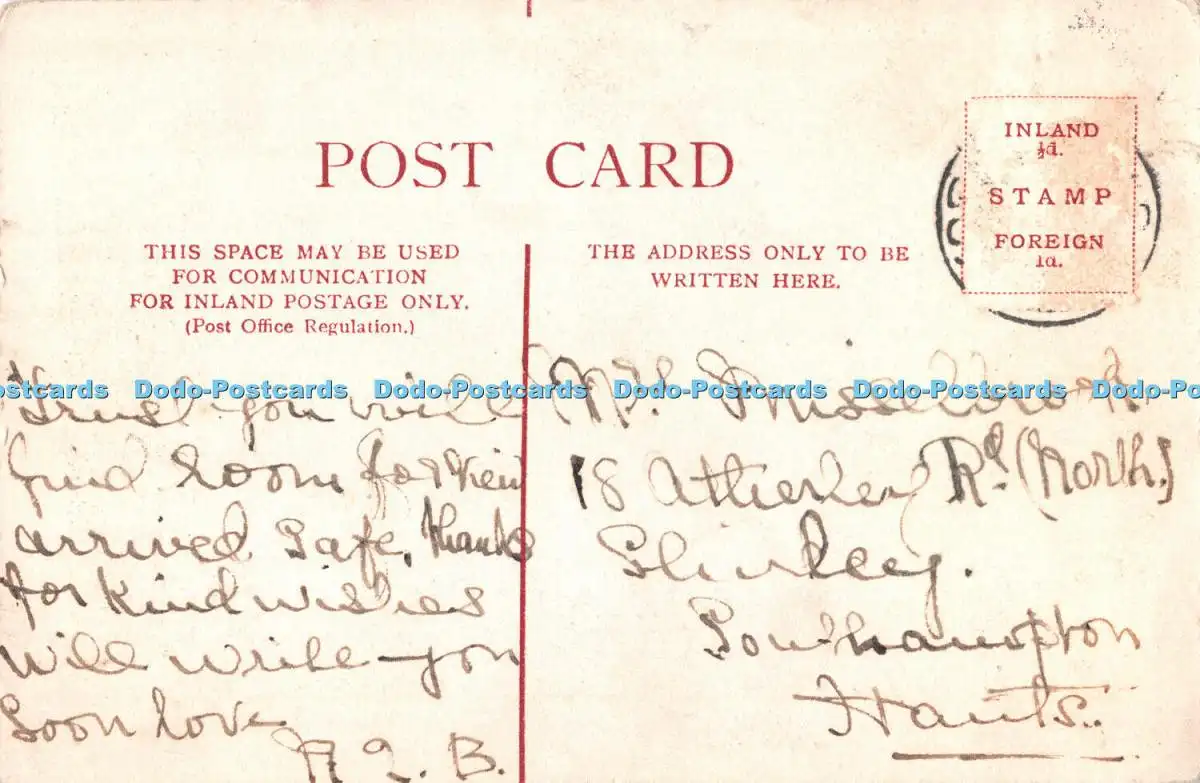 POST CARD
INLAND
½d.
STAMP
FOREIGN
1d.
THIS SPACE MAY BE USED
FOR COMMUNICATION
FOR INLAND POSTAGE ONLY.
(Post Office Regulation.)
THE ADDRESS ONLY TO BE
WRITTEN HERE.
Postcards Dodo-Postcards Dodo-Postcards Dodo-Postcards Dodo-Postcards Dodo-Po
Trust you will
find room for view
arrived Safe, thanks
for kind wishes
will write you
Soon love
B.
Mrs.
18 Atherley Rd (North)
Shirley.
Southampton
Hants.